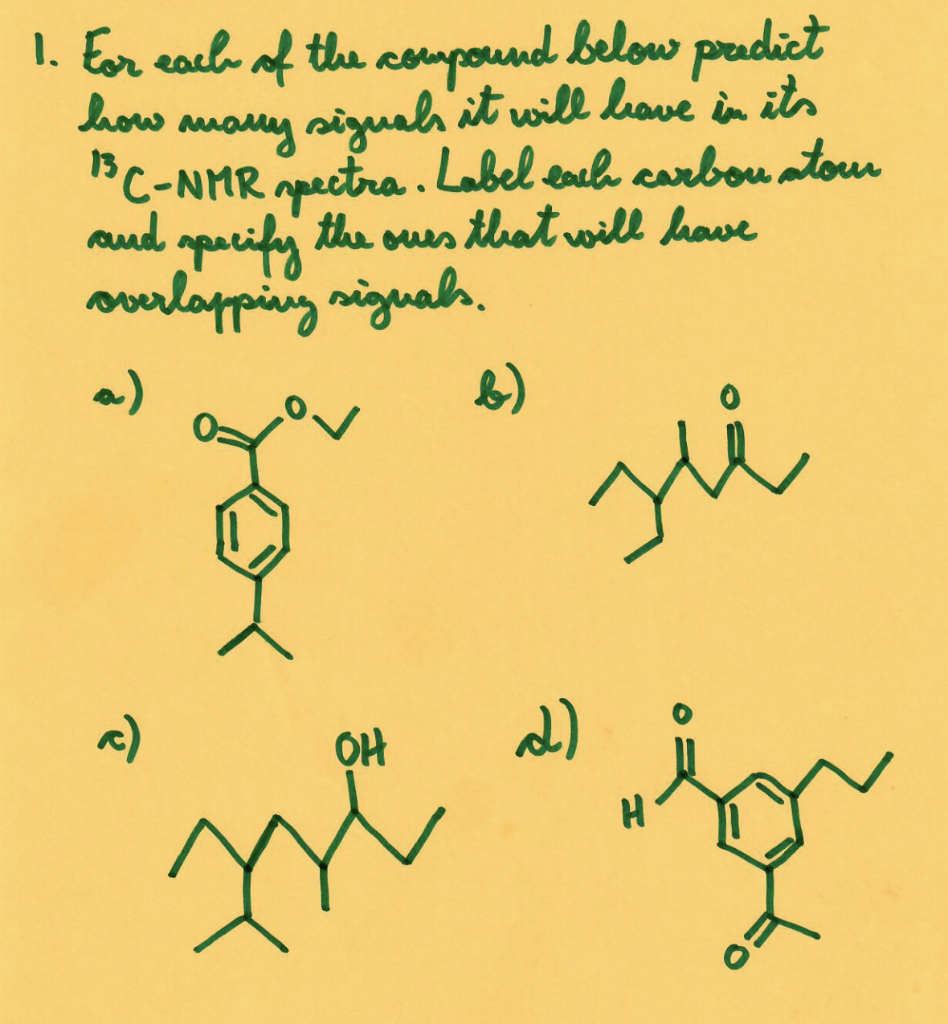 1. For each of the compound below predict
how many signals it will have in its
¹³C-NMR spectra. Label each carbon atom
and specify the ones that will have
overlapping signals.
a)
b)
O
O
O
c)
OH
d)
O
H
O